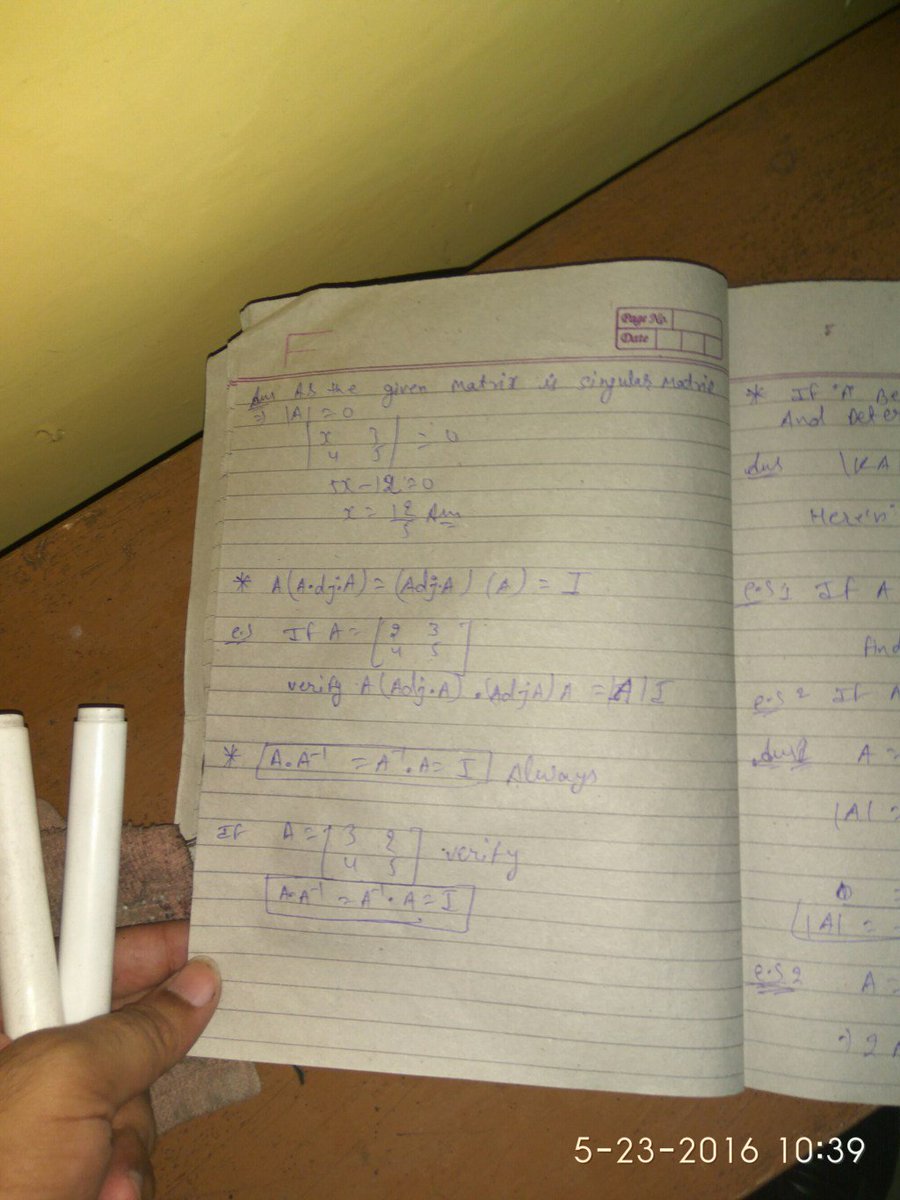 Page No.
Date
Ans As the given matrix is singular matrix
⇒ |A| = 0
| x 3 | = 0
| 4 5 |
5x - 12 = 0
x = 12/5 Ans
* A(Adj.A) = (Adj.A) (A) = I
e.g If A = [ 2 3
4 5 ]
verify A(Adj.A) . (AdjA) A = |A| I
* A.A⁻¹ = A⁻¹.A = I Always
If A = [ 3 2
4 5 ] verify
A.A⁻¹ = A⁻¹.A = I
8
* If "A" Be
And Deter
Ans |KA
Here "n"
e.g 1 If A
And
e.g 2 If A
Ans1 A =
|A| =
|A| =
e.g 2 A =
⇒ 2
5-23-2016 10:39